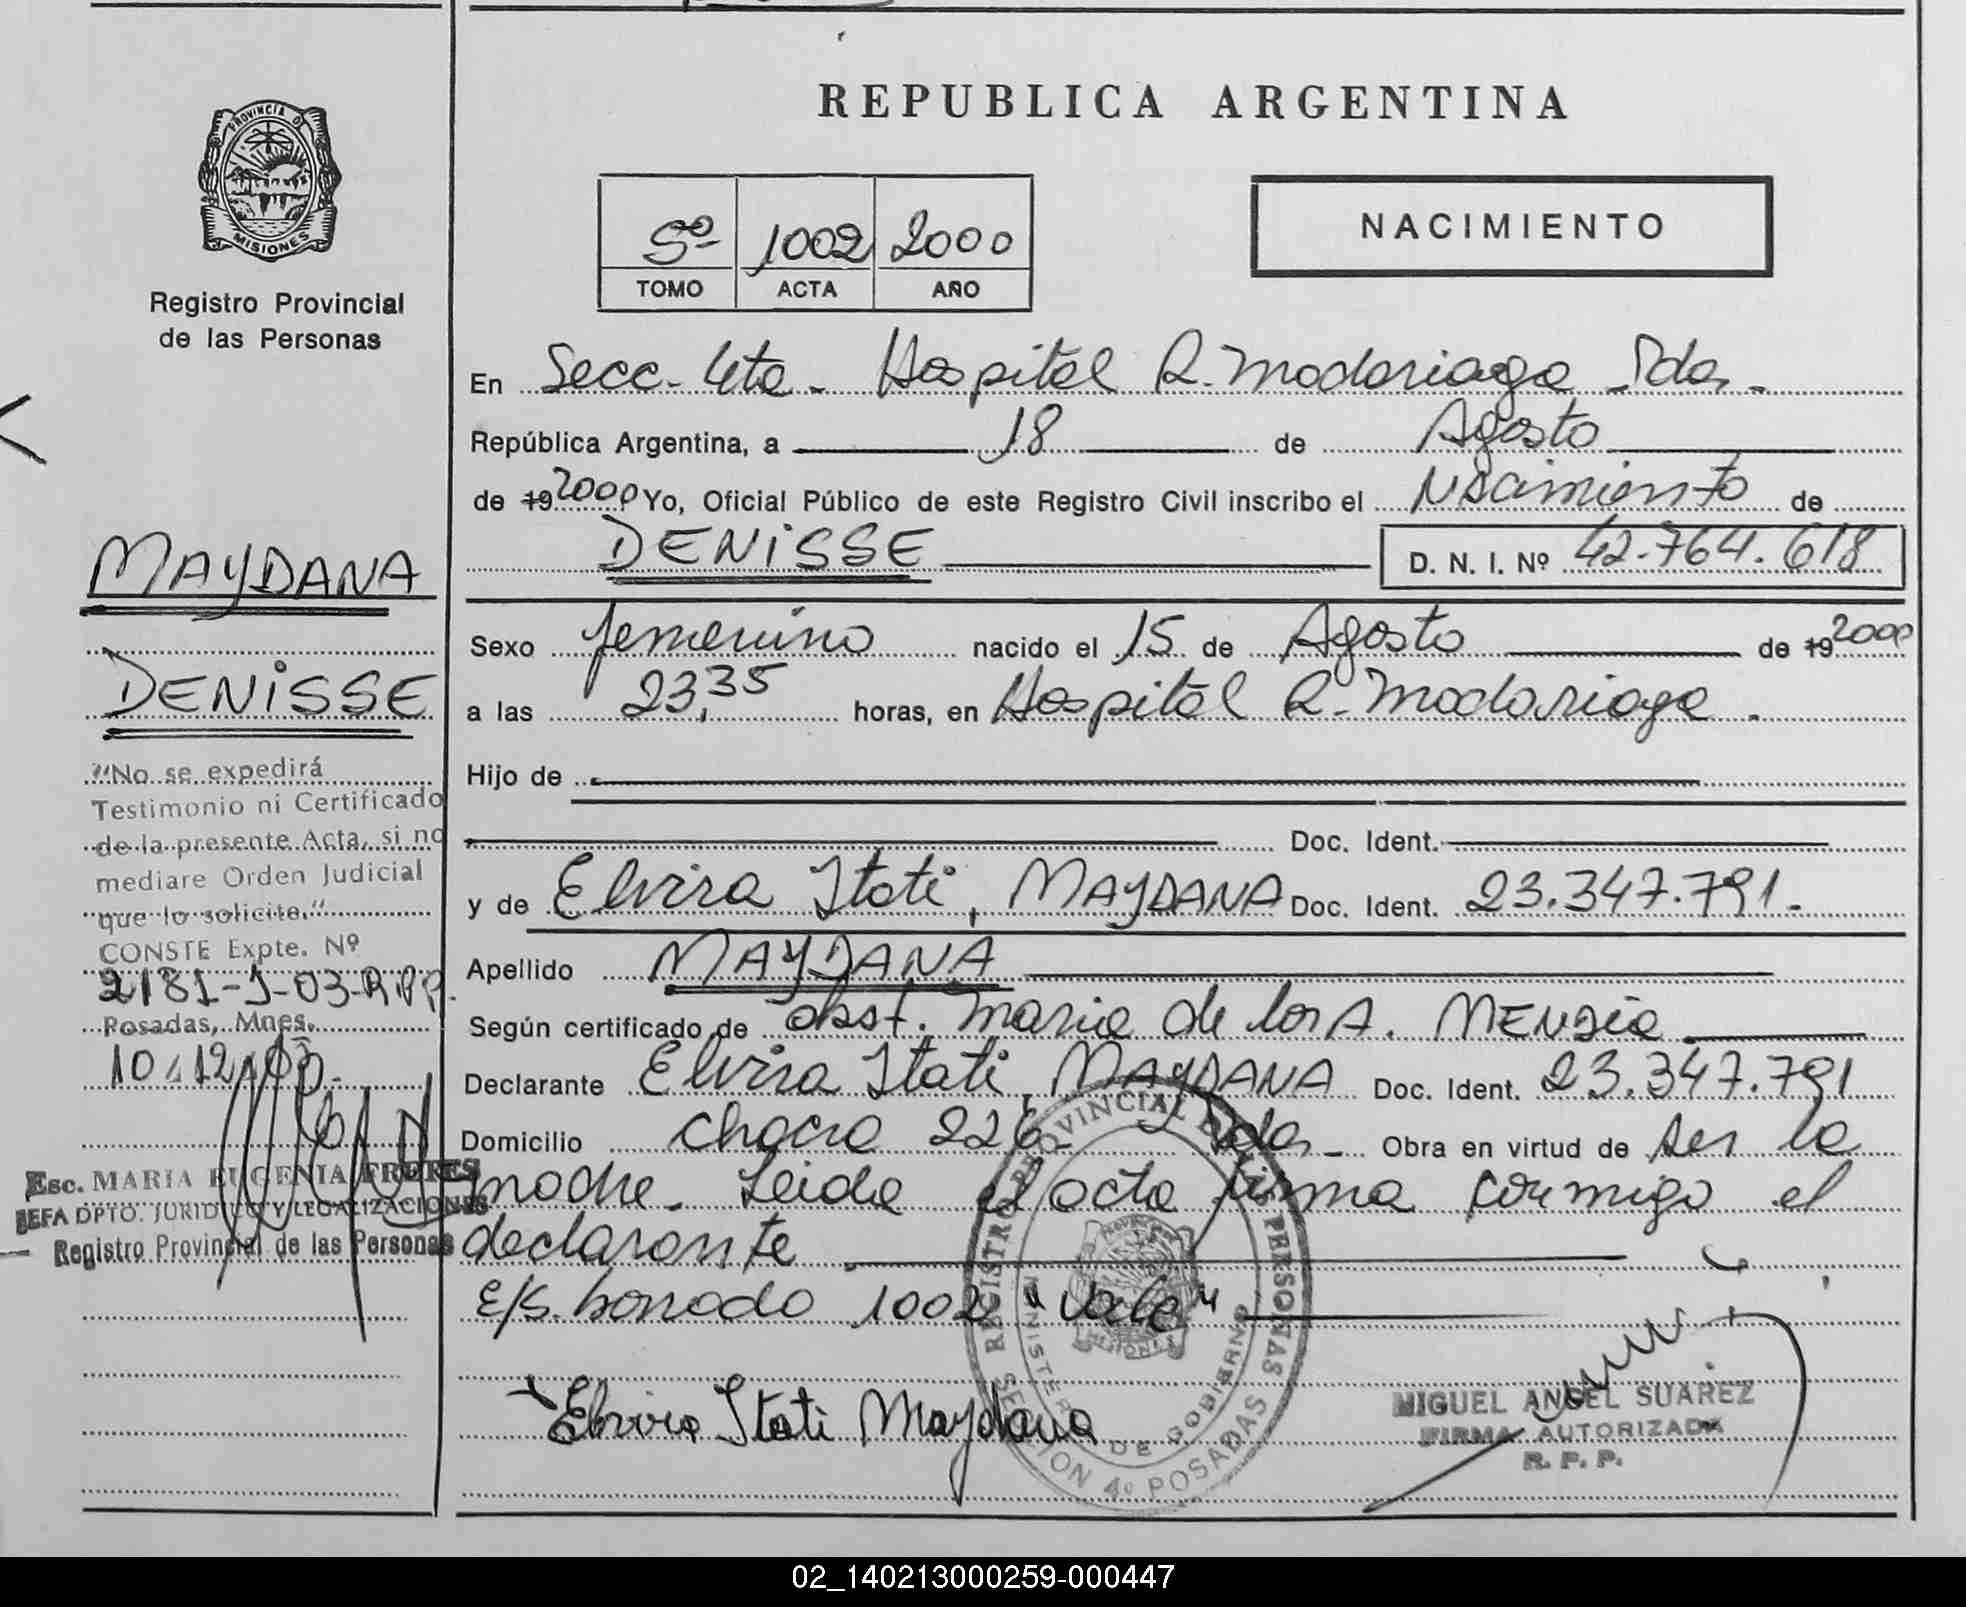 REPUBLICA ARGENTINA
PROVINCIA DE
MISIONES
Registro Provincial
de las Personas
5º 1002 2000
TOMO ACTA AÑO
NACIMIENTO
En Secc. 4ta. Hospital R. Madariaga Pdas.
República Argentina, a 18 de Agosto
de 19 2000 Yo, Oficial Público de este Registro Civil inscribo el Nacimiento de
DENISSE D. N. I. Nº 42.764.618
Sexo femenino nacido el 15 de Agosto de 19 2000
a las 23,35 horas, en Hospital R. Madariaga.
Hijo de
Doc. Ident.
y de Elvira Itati, MAYDANA Doc. Ident. 23.347.791.
Apellido MAYDANA
Según certificado de obst. Maria de los A. MENDIE
Declarante Elvira Itati, MAYDANA Doc. Ident. 23.347.791
Domicilio chacra 226 Pdas. Obra en virtud de ser la
madre. Leida el acta firma conmigo el
declarante
E/S. borrado 1002 "Vale"
Elvira Itati Maydana
MIGUEL ANGEL SUAREZ
FIRMA AUTORIZADA
R. P. P.
REGISTRO PROVINCIAL DE LAS PERSONAS
MINISTERIO DE GOBIERNO
SECCION 4º POSADAS
MAYDANA
DENISSE
"No se expedirá
Testimonio ni Certificado
de la presente Acta, si no
mediare Orden Judicial
que lo solicite."
CONSTE Expte. Nº
2181-J-03-R.P.P.
Posadas, Mnes.
10.12.03.
Esc. MARIA EUGENIA FRERES
JEFA DPTO. JURIDICO Y LEGALIZACIONES
Registro Provincial de las Personas
02_140213000259-000447